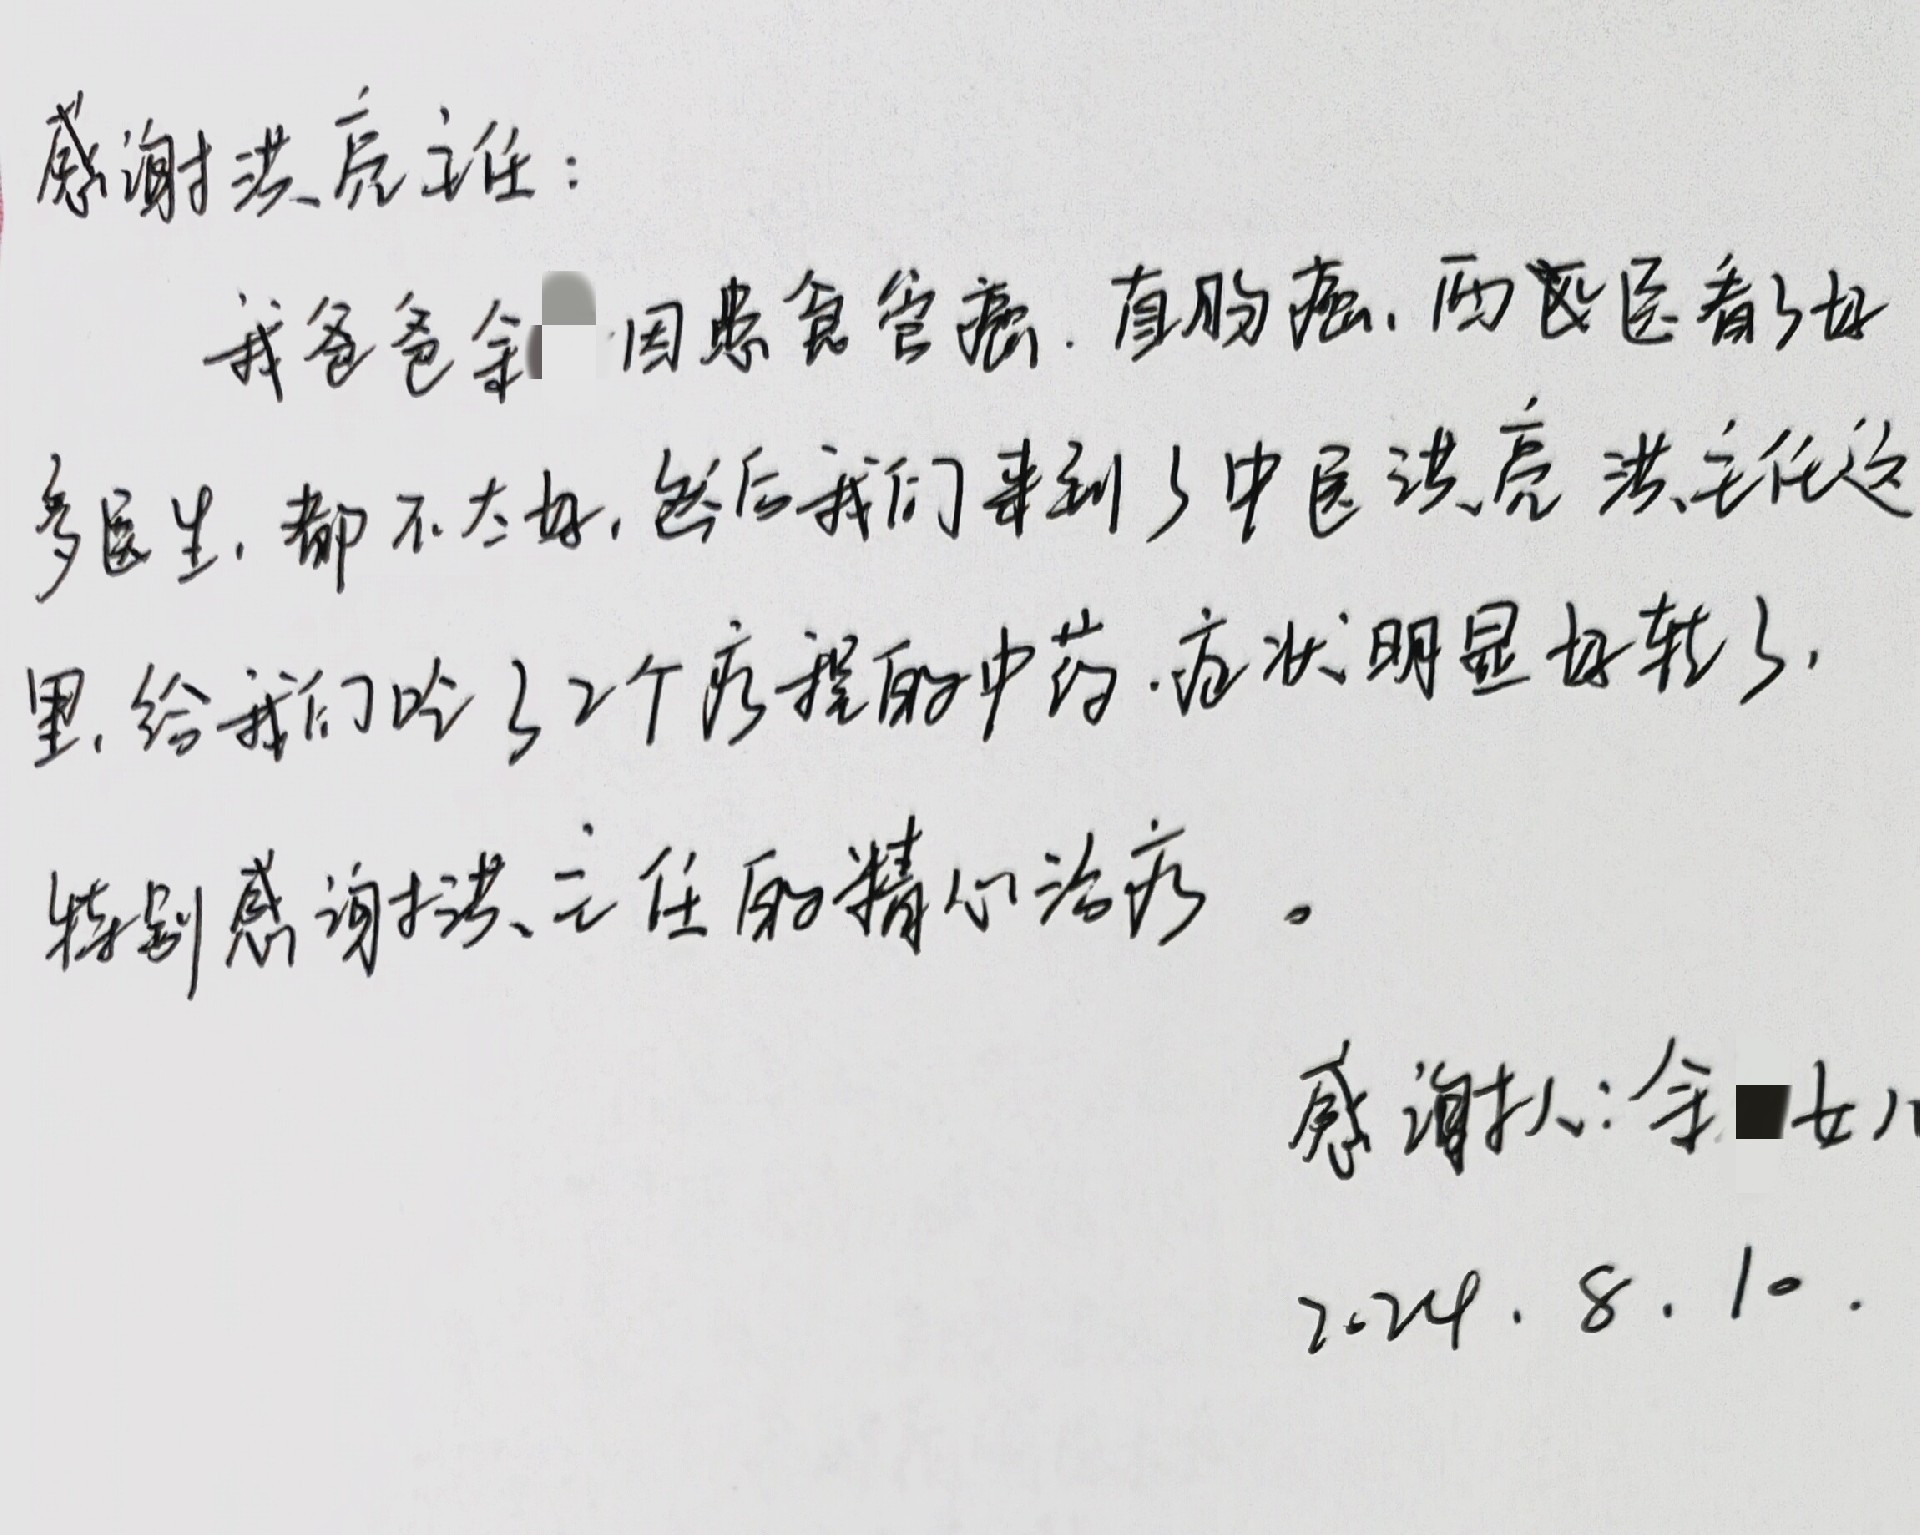 感谢洪亮主任：
我爸爸余 因患食管癌.直肠癌,西医看了好
多医生,都不太好,然后我们来到了中医洪亮 洪主任这
里,给我们吃了2个疗程的中药.症状明显好转了,
特别感谢洪主任的精心治疗。
感谢人：余 女儿
2024.8.10.